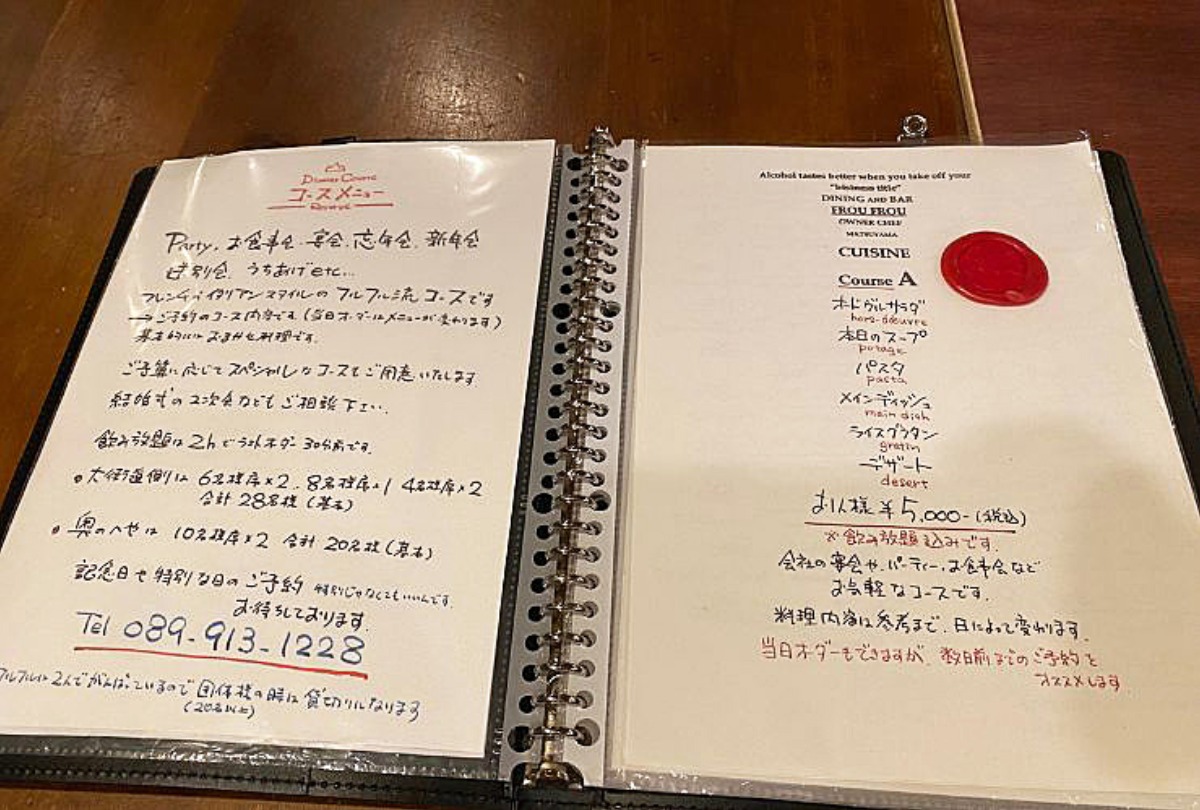 Dinner Course
コースメニュー
Reserve
Party、お食事会、宴会、忘年会、新年会
送別会、うちあげetc...
フレンチ、イタリアンスタイルのフルフル流コースです
→ご予約のコース内容です(当日オーダーはメニューが変わります)
基本的にはおまかせ料理です。
ご予算に応じてスペシャルなコースもご用意いたします
結婚式の2次会などもご相談下さい。
飲み放題は2hでラストオーダー30分前です。
•大街道側は 6名様席×2、8名様席×1 4名様席×2
合計28名様(基本)
•奥のへやは 10名様席×2 合計20名様(基本)
記念日や特別な日のご予約 特別じゃなくてもいいんです。
お待ちしております。
Tel 089-913-1228
フルフルは2人でがんばっているので団体様の時は貸切りになります
(20名以上)
Alcohol tastes better when you take off your
"bisiness title"
DINING AND BAR
FROU FROU
OWNER CHEF
MATSUYAMA
CUISINE
Course A
オードヴルサラダ
hors-d'oeuvre
本日のスープ
potage
パスタ
pasta
メインディッシュ
main dish
ライスグラタン
gratin
デザート
desert
お1人様 ¥5,000-(税込)
※飲み放題込みです。
会社の宴会や、パーティー、お食事会など
お気軽なコースです。
料理内容は参考まで、日によって変わります。
当日オーダーもできますが、数日前までのご予約を
オススメします